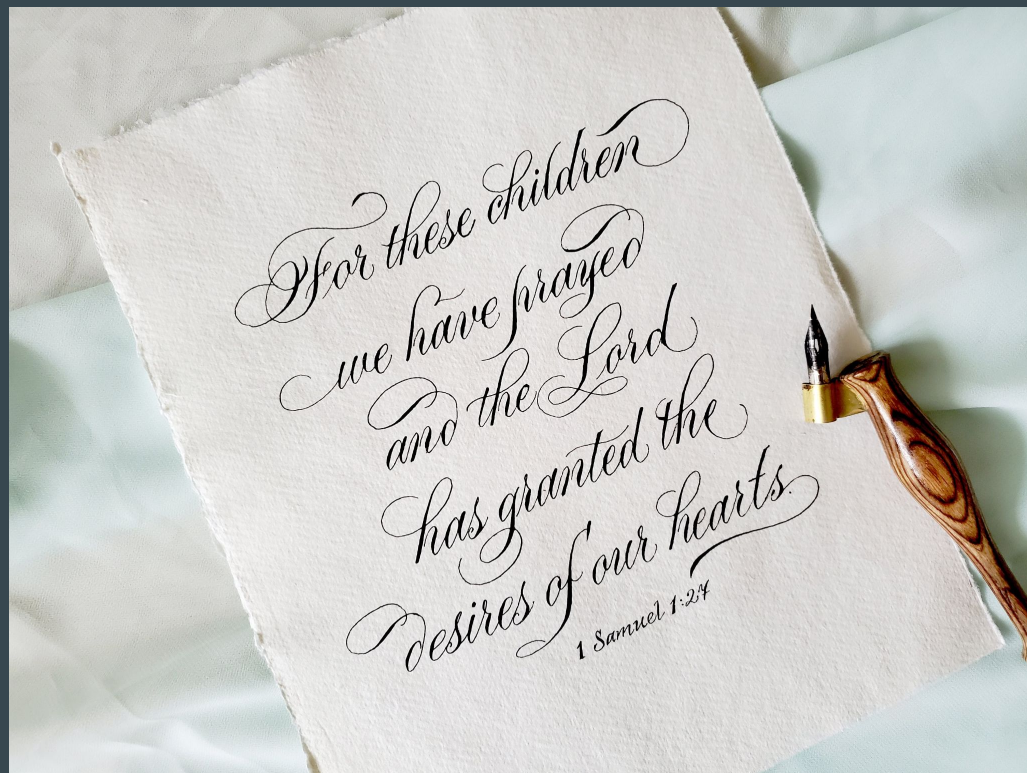 For these children
we have prayed
and the Lord
has granted the
desires of our hearts.
1 Samuel 1:27